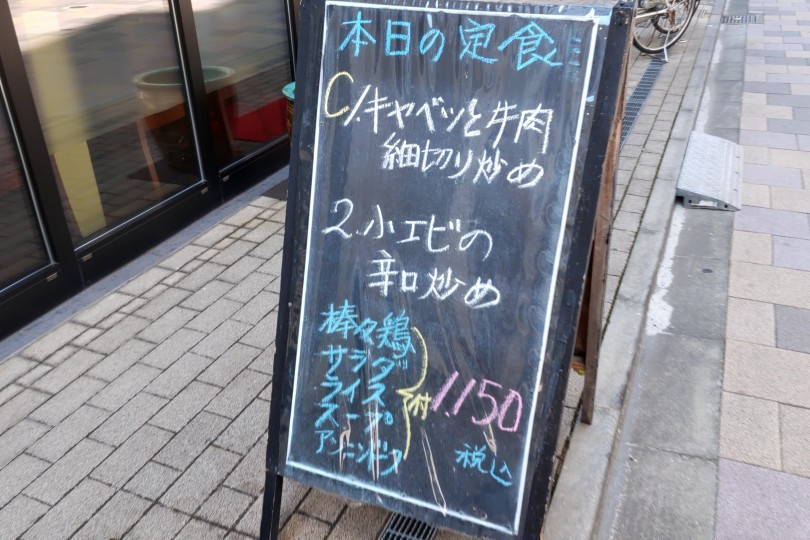 本日の定食
1.キャベツと牛肉
細切り炒め
2.小エビの
辛口炒め
棒々鶏
サラダ
ライス
スープ
アンニンドーフ
付
1.150
税込